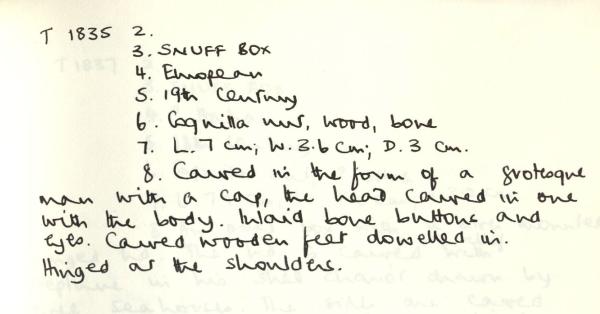 T 1835 2.
3. SNUFF BOX
4. European
5. 19th Century
6. Coquilla nut, wood, bone
7. L. 7 cm; W. 3.6 cm; D. 3 cm.
8. Carved in the form of a grotesque
man with a cap, the head carved in one
with the body. Inlaid bone buttons and
eyes. Carved wooden feet dowelled in.
Hinged at the shoulders.